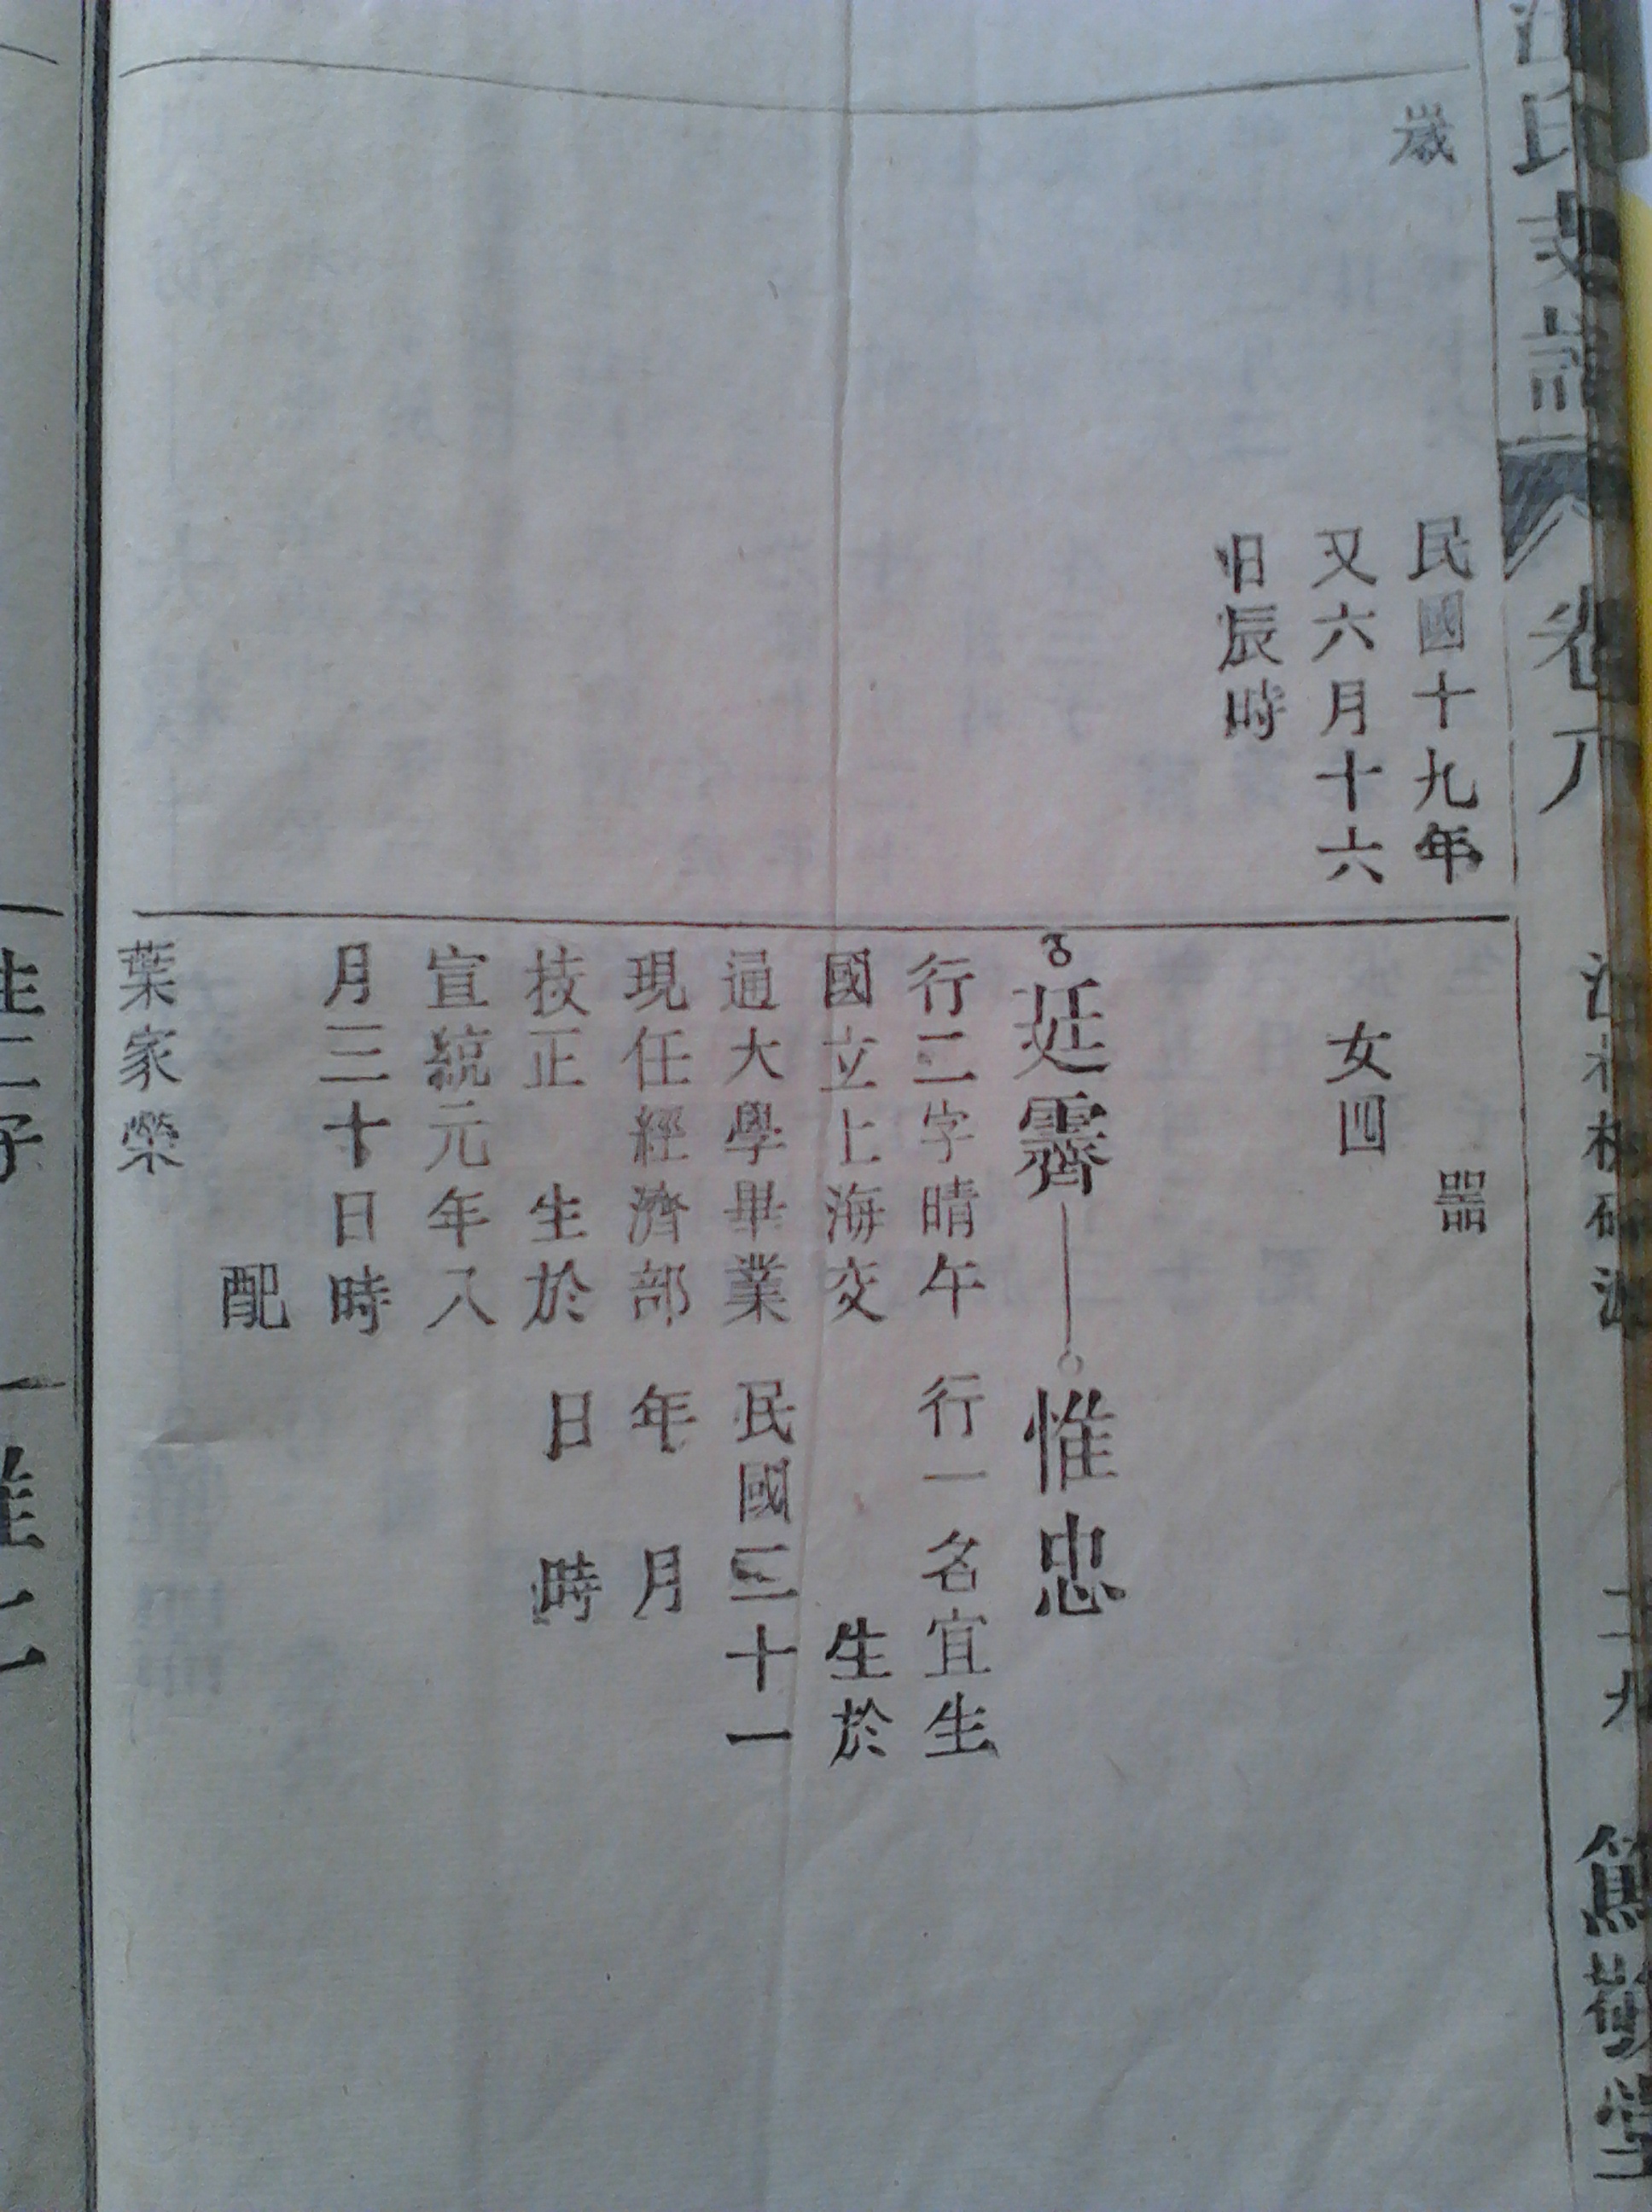 氏支譜
卷六
歲
民國十九年
又六月十六
日辰時
噐
女四
廷霽
行二字晴午
國立上海交
通大學畢業
現任經濟部
技正　生於
宣統元年八
月三十日時
配
葉家榮
惟忠
行一名宜生
生於
民國三十一
年　月
日　時